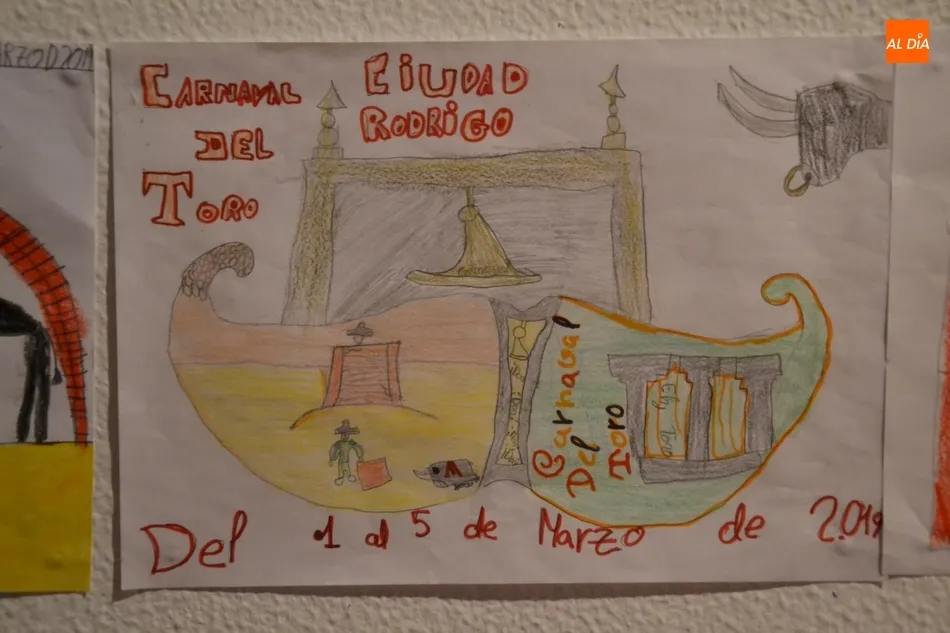 CARNAVAL
DEL
TORO
CIUDAD
RODRIGO
AL DÍA
Carnaval
Del
Toro
Del 1 al 5 de Marzo de 2.019